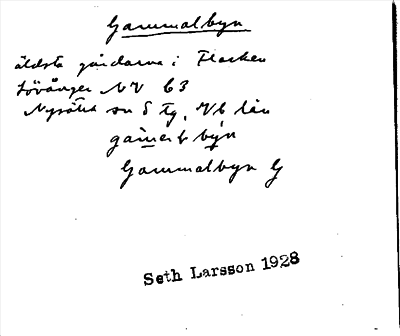 Gammalbyn
äldsta gårdarna i Flarken
Lövånger NV 63
Nysätra sn S Tg, Vb län
byn
Gammalbyn G
Seth Larsson 1928